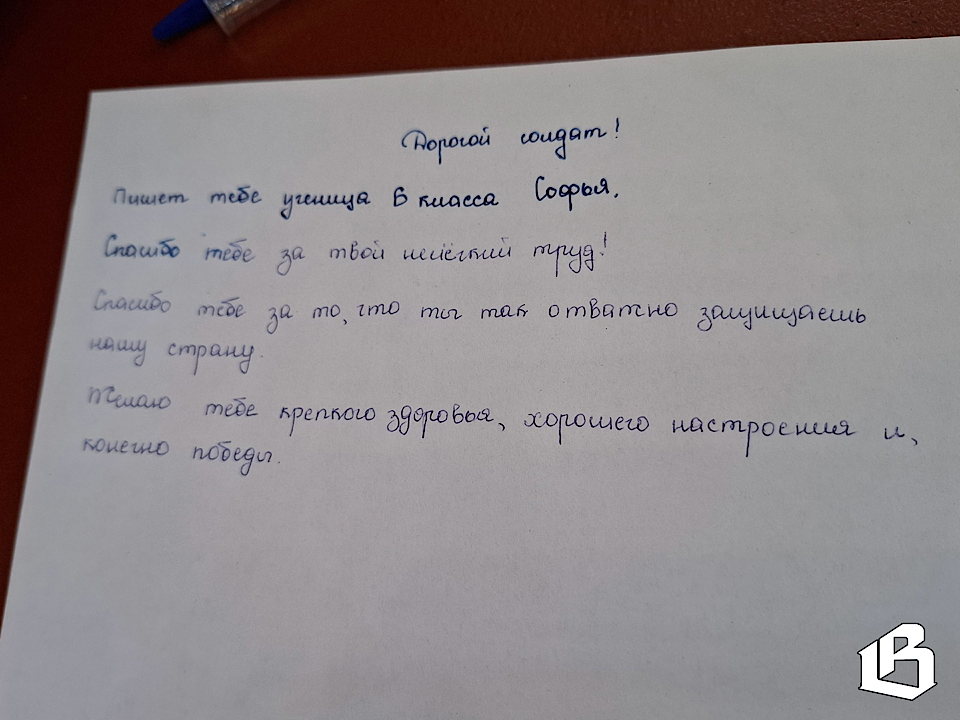 Дорогой солдат!
Пишет тебе ученица 6 класса Софья.
Спасибо тебе за твой нелёгкий труд!
Спасибо тебе за то, что ты так отважно защищаешь
нашу страну.
Желаю тебе крепкого здоровья, хорошего настроения и,
конечно победы.
В